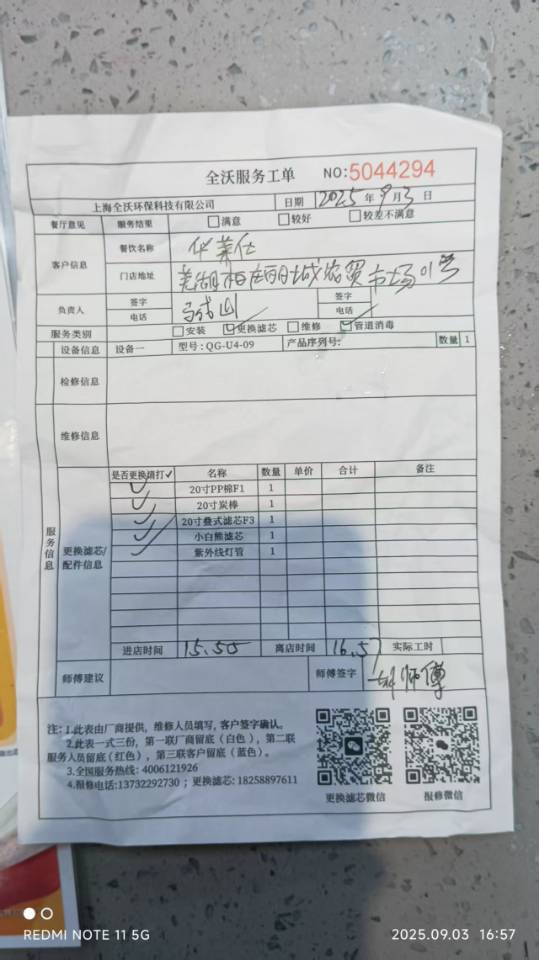 全沃服务工单 NO:5044294
上海全沃环保科技有限公司 日期 2025年9月3日
餐厅意见 服务结果 满意 较好 较差不满意
客户信息 餐饮名称 华莱仕
门店地址 芜湖 城农贸市场01号
负责人 签字 签字
电话 电话
服务类别 安装 更换滤芯 维修 管道消毒
设备信息 设备一 型号:QG-U4-09 产品序列号: 数量 1
检修信息
维修信息
服务信息
更换滤芯/配件信息
是否更换请打✓ 名称 数量 单价 合计 备注
✓ 20寸PP棉F1 1
✓ 20寸炭棒 1
✓ 20寸叠式滤芯F3 1
✓ 小白熊滤芯 1
✓ 紫外线灯管 1
进店时间 15.50 离店时间 16.57 实际工时
师傅建议 师傅签字 师傅
注:1.此表由厂商提供,维修人员填写,客户签字确认。
2.此表一式三份,第一联厂商留底(白色),第二联
服务人员留底(红色),第三联客户留底(蓝色)。
3.全国服务热线:4006121926
4.报修电话:13732292730;更换滤芯:18258897611
更换滤芯微信 报修微信
REDMI NOTE 11 5G 2025.09.03 16:57